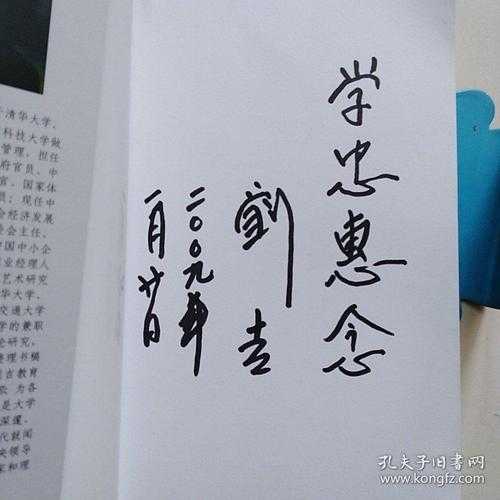 清华大学、
科技大学做
管理，担任
府官员、中
官、国家体
员；现任中
会经济发展
会主任、
中国中小企
业经理人
艺术研究
华大学、
交通大学
学的兼职
论研究，
整理书稿
吉教育
为各
是大学
深邃、
代就闻
央领导
家和理
学忠惠念
劉吉
二〇〇九年
一月廿日
孔夫子旧书网
www.kongfz.com